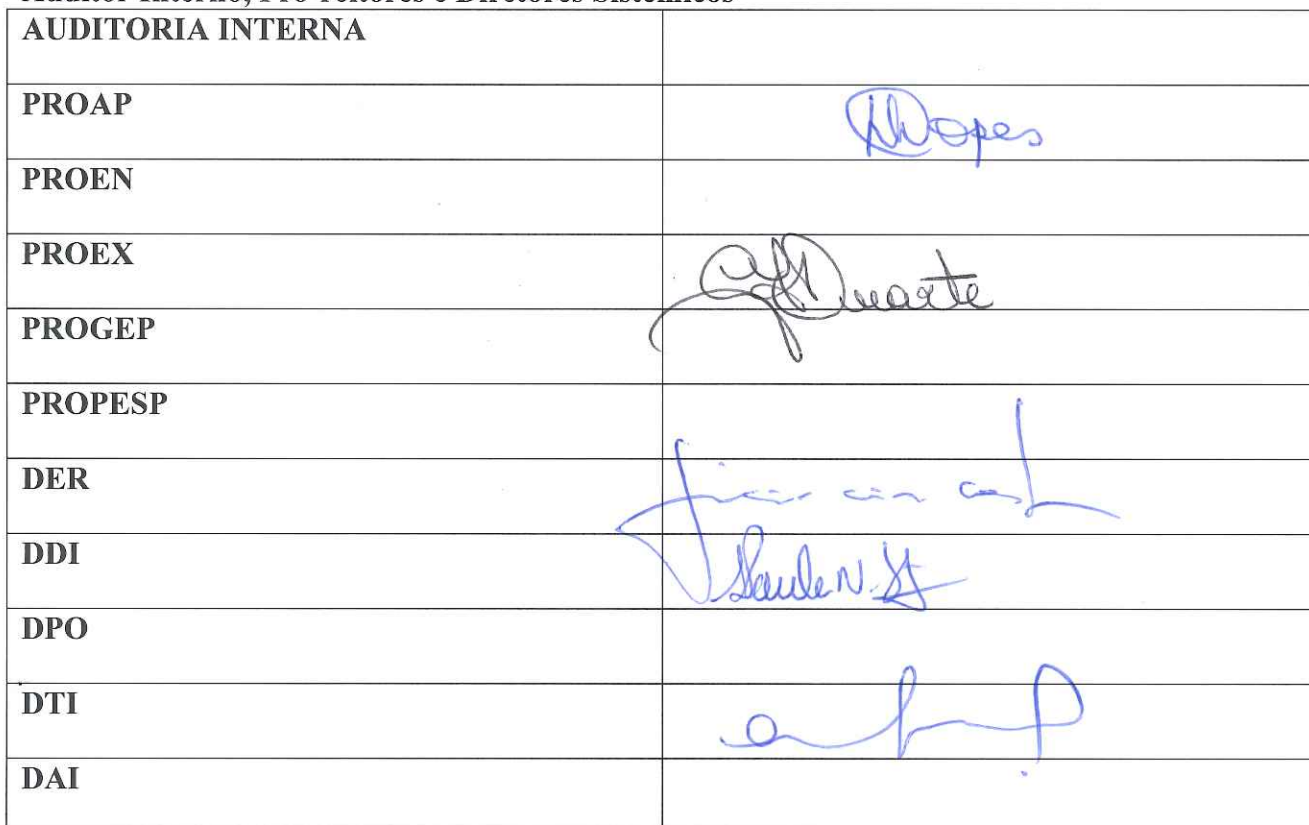 Auditor Interno, Pró-reitores e Diretores Sistêmicos
AUDITORIA INTERNA
PROAP
Lopes
PROEN
PROEX
Duarte
PROGEP
PROPESP
DER
DDI
DPO
DTI
DAI